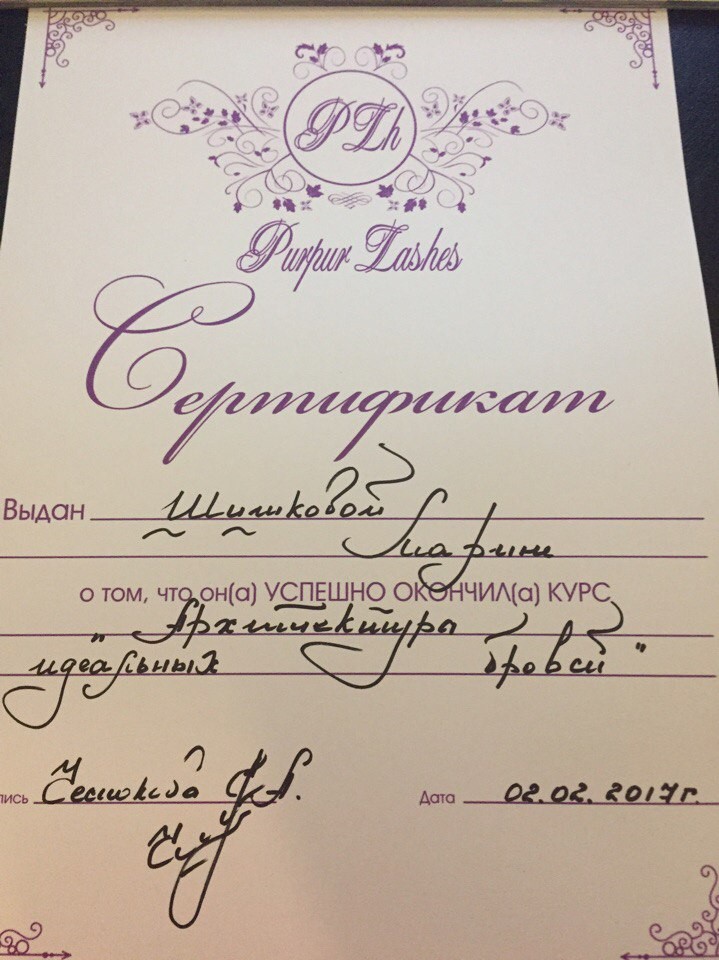 PLh
Purpur Lashes
Сертификат
Выдан Шишковой
Марине
о том, что он(а) УСПЕШНО ОКОНЧИЛ(а) КУРС
"Архитектуры
идеальных бровей"
пись А.
Дата 02.02.2017г.